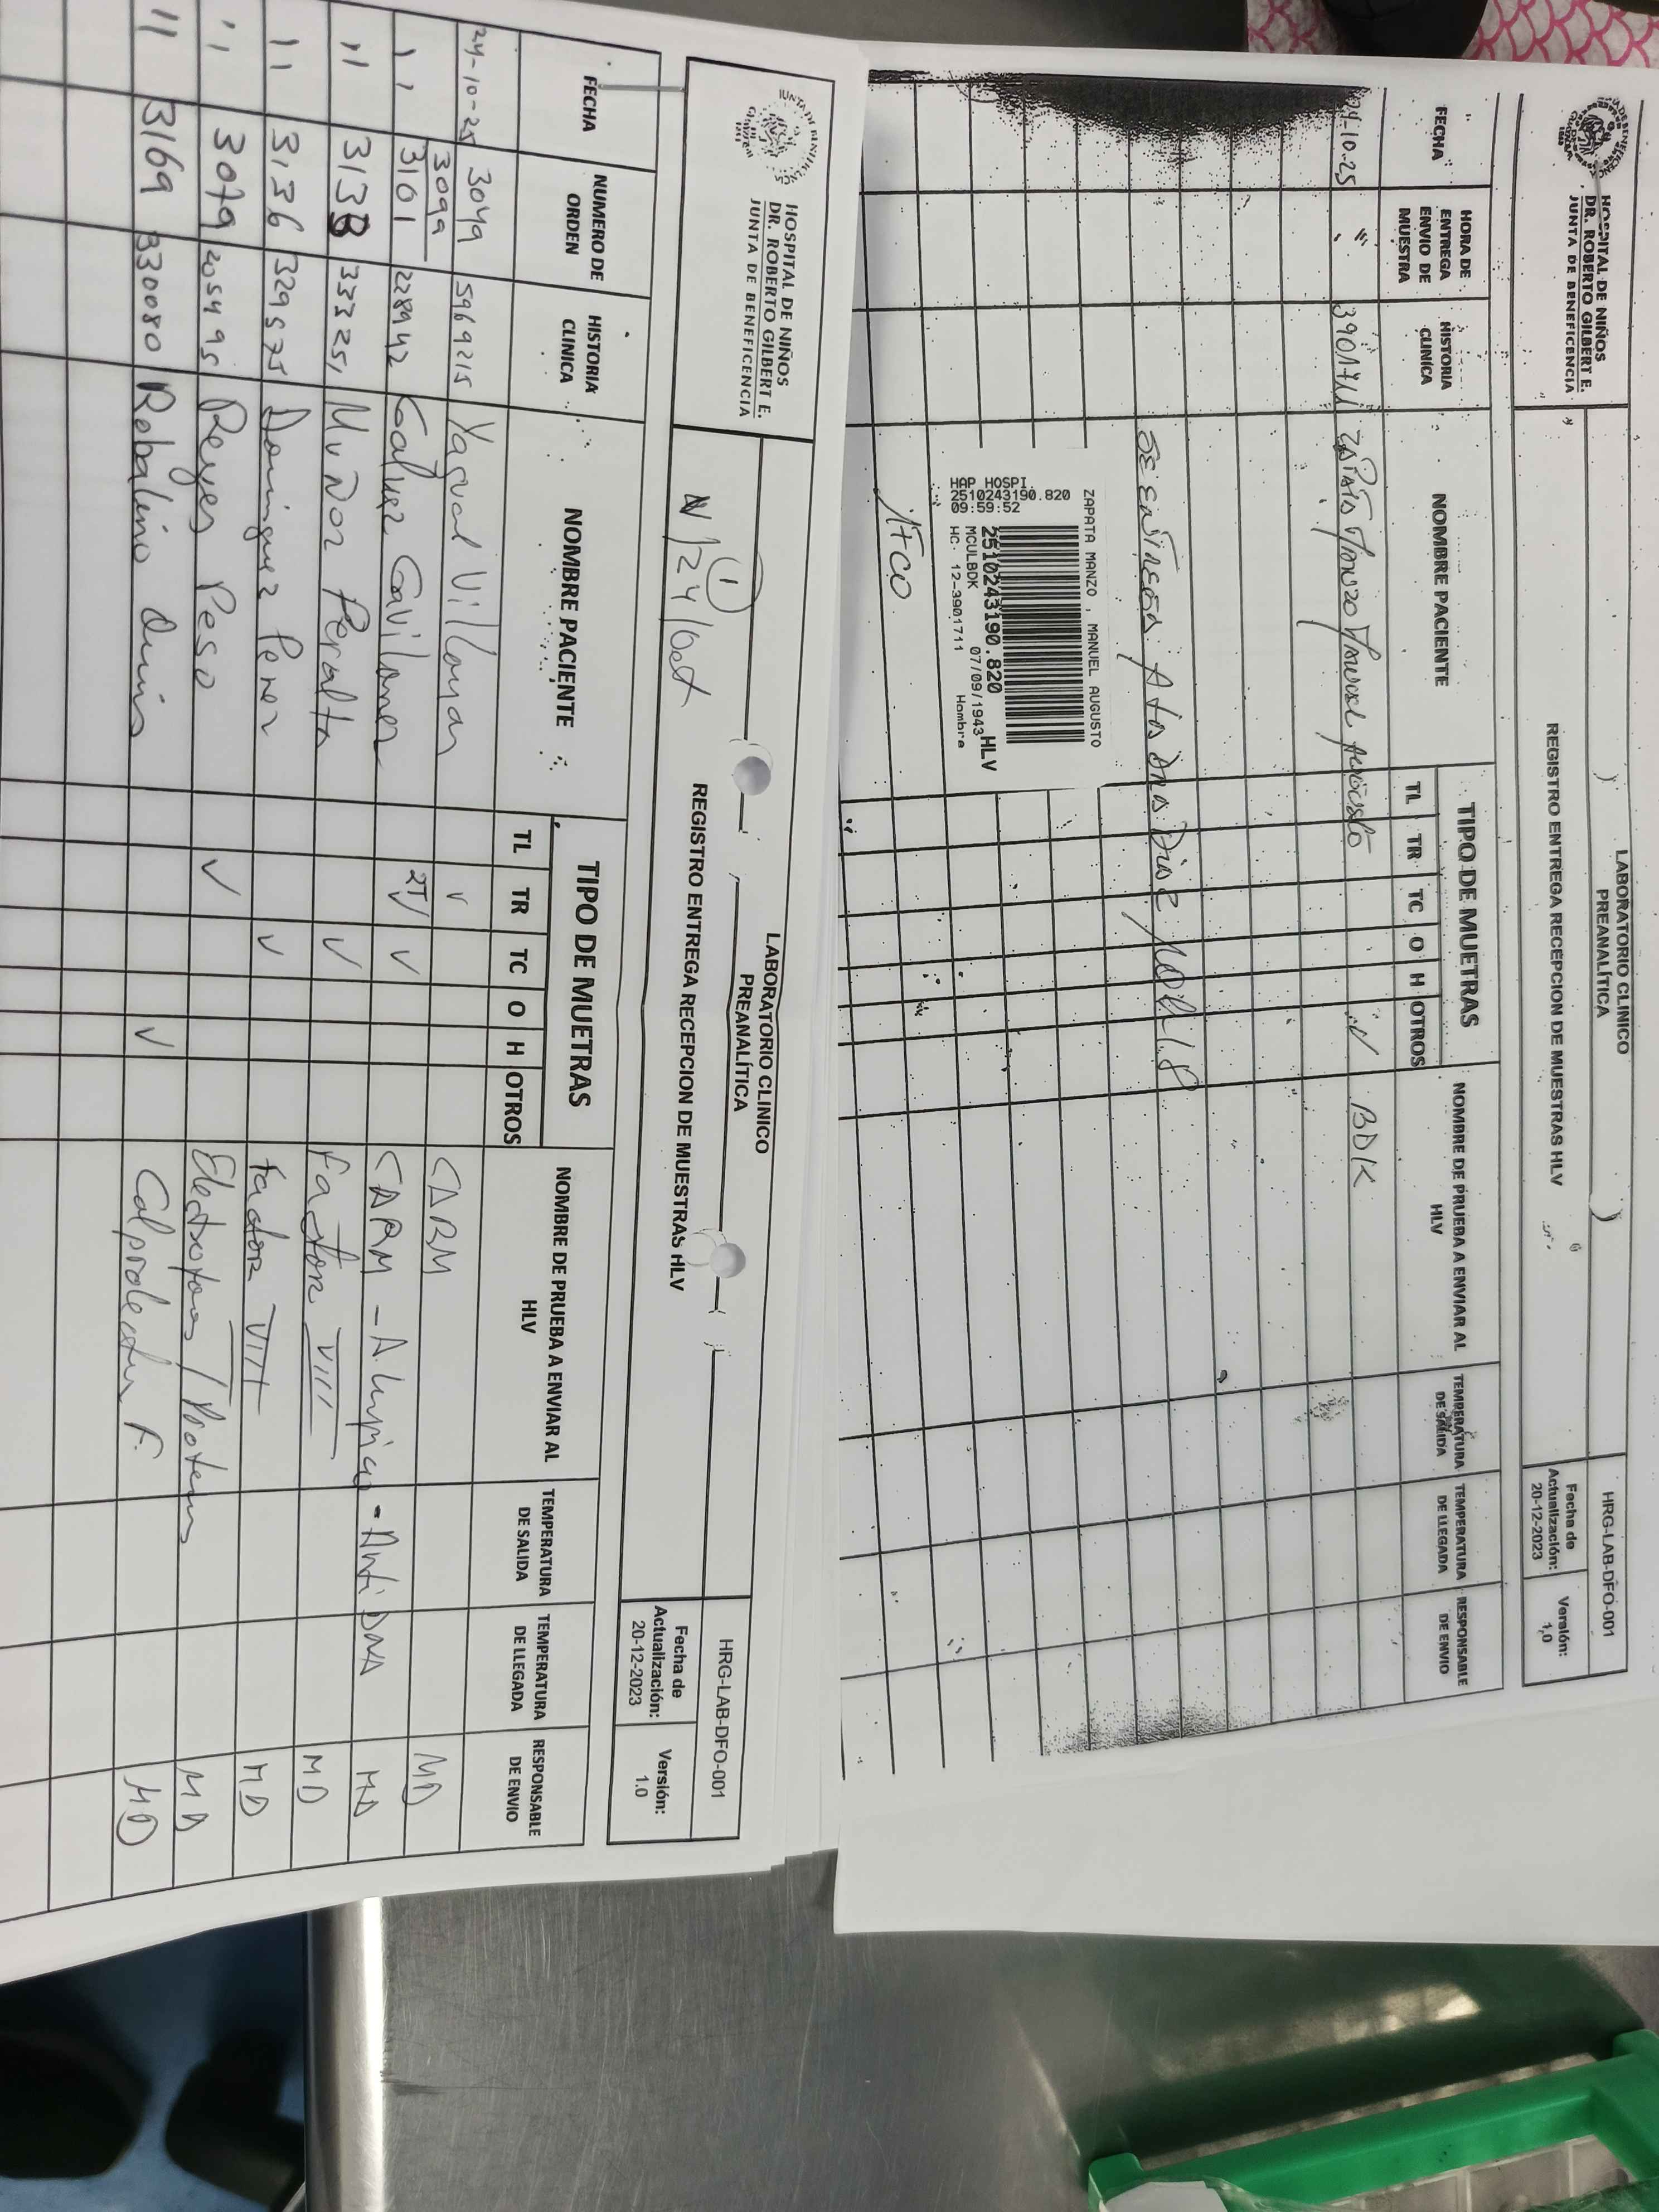 HOSPITAL DE NIÑOS
DR. ROBERTO GILBERT E.
JUNTA DE BENEFICENCIA
LABORATORIO CLINICO
PREANALÍTICA
HRG-LAB-DFO-001
REGISTRO ENTREGA RECEPCION DE MUESTRAS HLV
Fecha de
Actualización:
20-12-2023
Versión:
1.0
FECHA
HORA DE
ENTREGA
ENVIO DE
MUESTRA
HISTORIA
CLINICA
NOMBRE PACIENTE
TIPO DE MUETRAS
TL TR TC O H OTROS
NOMBRE DE PRUEBA A ENVIAR AL
HLV
TEMPERATURA
DE SALIDA
TEMPERATURA
DE LLEGADA
RESPONSABLE
DE ENVIO
24-10-25 3901711 BDK
ZAPATA MANZO , MANUEL AUGUSTO
2510243190.820 HLV
07/09/1943
MCULBDK
HC. 12-3901711 Hombre
HAP HOSPI.
2510243190.820
09:59:52
HOSPITAL DE NIÑOS
DR. ROBERTO GILBERT E.
JUNTA DE BENEFICENCIA
LABORATORIO CLINICO
PREANALÍTICA
HRG-LAB-DFO-001
REGISTRO ENTREGA RECEPCION DE MUESTRAS HLV
Fecha de
Actualización:
20-12-2023
Versión:
1.0
24/Oct
FECHA
NUMERO DE
ORDEN
HISTORIA
CLINICA
NOMBRE PACIENTE
TIPO DE MUETRAS
TL TR TC O H OTROS
NOMBRE DE PRUEBA A ENVIAR AL
HLV
TEMPERATURA
DE SALIDA
TEMPERATURA
DE LLEGADA
RESPONSABLE
DE ENVIO
24-10-25 3049 5969215 Yagual Villamar ✓ CARM MD
3099
" 3101 228942 2T ✓ ✓ CARM - A. Lupico - Anti DNA MD
" 3138 Muñoz Peralta ✓ Factor VIII MD
" 3136 329575 Dominguez Perez ✓ Factor VIII MD
" 3079 205495 Reyes Peso ✓ MD
" 3169 330080 Rebalino ✓ F. MD